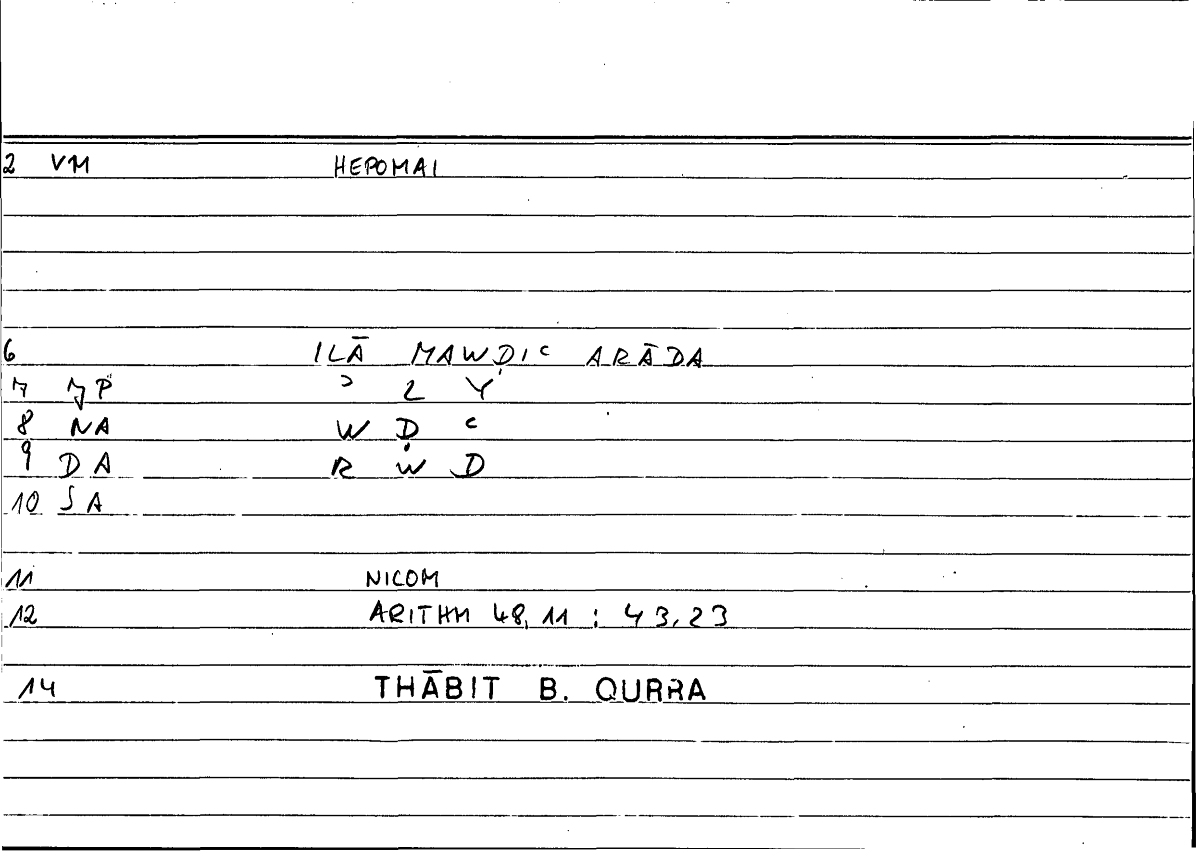 2 VM HEPOMAI
6 ILĀ MAWḌIʿ ARĀDA
7 JP ʾ L Y
8 NA W Ḍ ʿ
9 DA R W D
10 SA
11 NICOM
12 ARITHM 48,11 : 43,23
14 THĀBIT B. QURRA